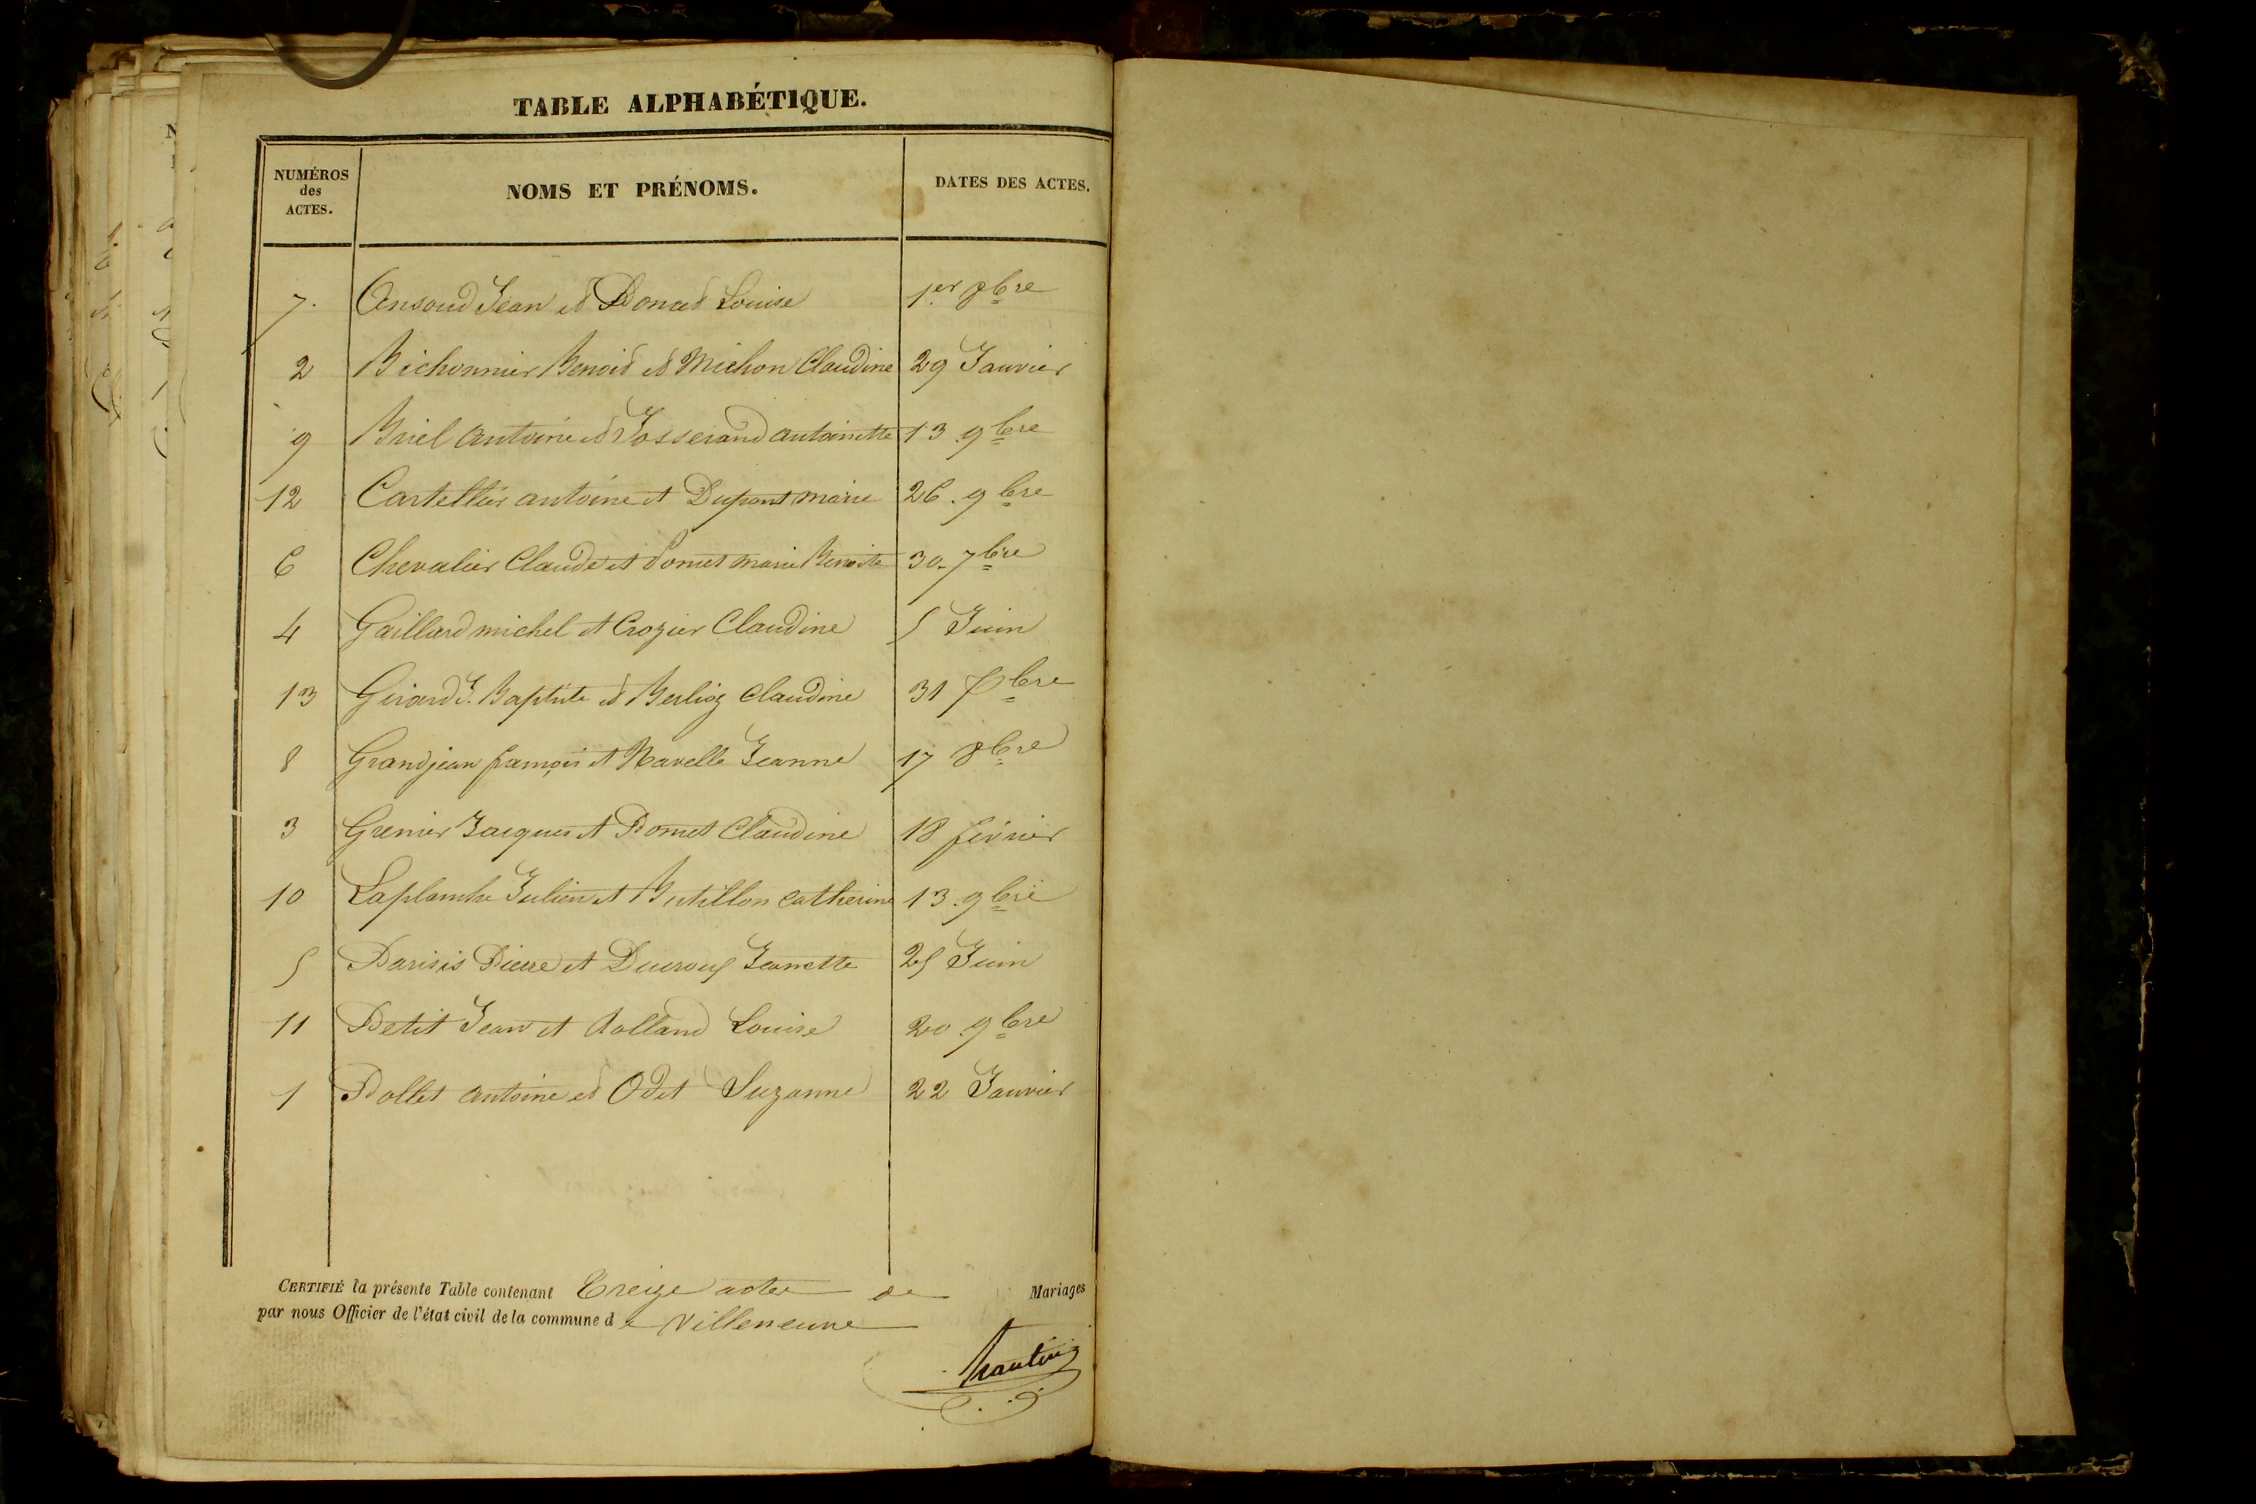 TABLE ALPHABÉTIQUE.
NUMÉROS des ACTES. NOMS ET PRÉNOMS. DATES DES ACTES.
7. Ansoud Jean et Poncet Louise 1er 8bre
2 Bichonnier Benoit et Michon Claudine 29 Janvier
9 Briel antoine et Josserand antoinette 13 9bre
12 Cartellier antoine et Dupont marie 26. 9bre
6 Chevalier Claude et Pomet marie Benoite 30. 7bre
4 Gaillard michel et Crozier Claudine 5 Juin
13 Girard J. Baptiste et Berlioz Claudine 31 Xbre
8 Grandjean françois et Navelle Jeanne 17 8bre
3 Grenier Jacques et Pomet Claudine 18 février
10 Laplanche Julien et Butillon catherine 13. 9bre
5 Parisis Pierre et Ducroux Jeanette 25 Juin
11 Petit Jean et Rolland Louise 20. 9bre
1 Pollet antoine et Odet Suzanne 22 Janvier
CERTIFIÉ la présente Table contenant Treize actes de Mariages
par nous Officier de l'état civil de la commune de Villeneuve